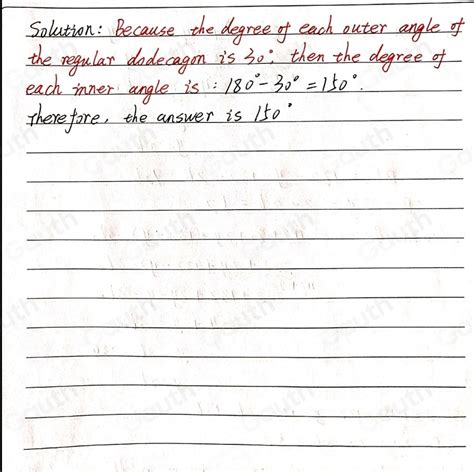 Solution: Because the degree of each outer angle of
the regular dodecagon is 30°, then the degree of
each inner angle is : 180° - 30° = 150°.
Therefore, the answer is 150°